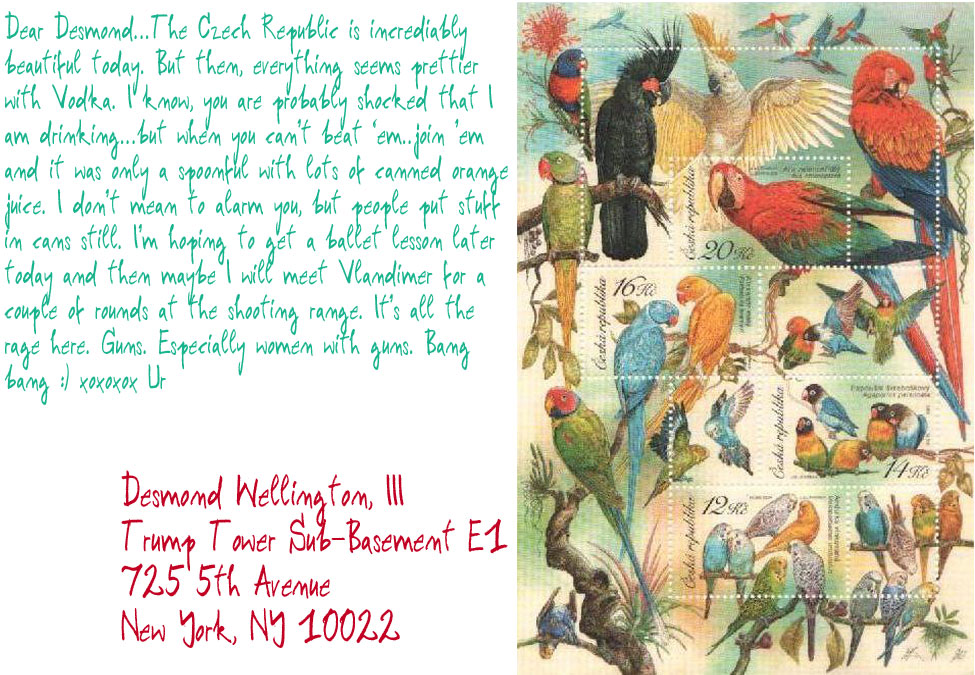 Dear Desmond...The Czech Republic is incrediably
beautiful today. But then, everything seems prettier
with Vodka. I know, you are probably shocked that I
am drinking...but when you can't beat 'em..join 'em
and it was only a spoonful with lots of canned orange
juice. I don't mean to alarm you, but people put stuff
in cans still. I'm hoping to get a ballet lesson later
today and then maybe I will meet Vlandimer for a
couple of rounds at the shooting range. It's all the
rage here. Guns. Especially women with guns. Bang
bang :) xoxoxox Ur
Desmond Wellington, III
Trump Tower Sub-Basement E1
725 5th Avenue
New York, NY 10022
Česká republika
20 Kč
Česká republika
16 Kč
Česká republika
14 Kč
Agapornis personata
Česká republika
12 Kč